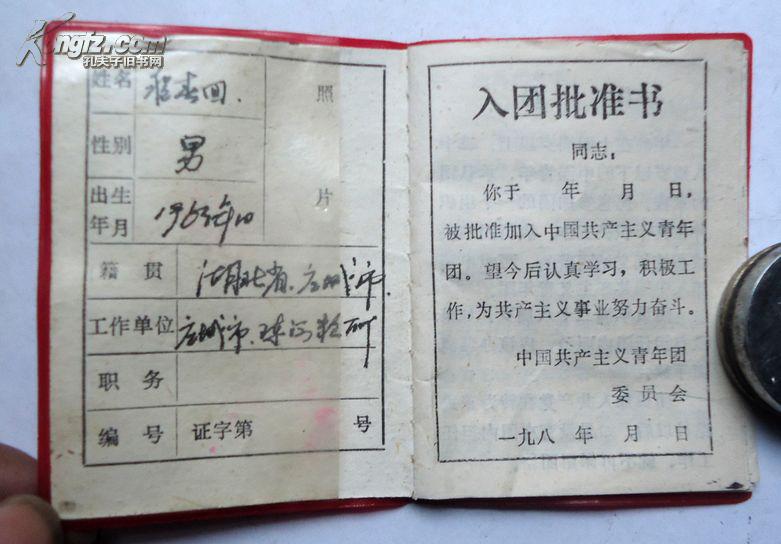 Kongfz.com
孔夫子旧书网
姓名
照
性别 男
出生
年月 1963年10
片
籍贯 湖北省.应城市
工作单位 应城市.
职务
编号 证字第 号
入团批准书
同志：
你于 年 月 日，
被批准加入中国共产主义青年
团。望今后认真学习，积极工
作，为共产主义事业努力奋斗。
中国共产主义青年团
委员会
一九八 年 月 日